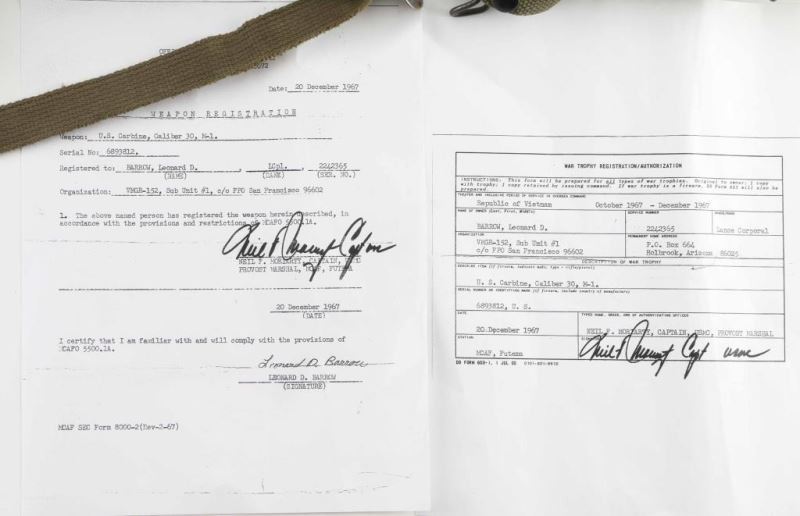 Date: 20 December 1967
WEAPON REGISTRATION
Weapon: U.S. Carbine, Caliber 30, M-1.
Serial No: 6893812,
Registered to: BARROW, Leonard D. , LCpl. 2242365
(NAME) (RANK) (SER. NO.)
Organization: VMGR-152, Sub Unit #1, c/o FPO San Francisco 96602
1. The above named person has registered the weapon herein described, in
accordance with the provisions and restrictions of MCAFO 5500.1A.
NEIL F. MORIARTY, CAPTAIN,
PROVOST MARSHAL, MCAF, FUTEMA
20 December 1967
(DATE)
I certify that I am familiar with and will comply with the provisions of
MCAFO 5500.1A.
Leonard D. Barrow
LEONARD D. BARROW
(SIGNATURE)
MCAF SEC Form 8000-2(Rev-2-67)
WAR TROPHY REGISTRATION/AUTHORIZATION
INSTRUCTIONS: This form will be prepared for all types of war trophies. Original to owner; 1 copy
with trophy; 1 copy retained by issuing command. If war trophy is a firearm, DD Form 603 will also be
prepared.
THEATER AND INCLUSIVE PERIOD OF SERVICE IN OVERSEAS COMMAND
Republic of Vietnam October 1967 - December 1967
NAME OF OWNER (Last, First, Middle) SERVICE NUMBER GRADE/RANK
BARROW, Leonard D. 2242365 Lance Corporal
ORGANIZATION PERMANENT HOME ADDRESS
VMGR-152, Sub Unit #1 P.O. Box 664
c/o FPO San Francisco 96602 Holbrook, Arizona 86025
DESCRIPTION OF WAR TROPHY
U. S. Carbine, Caliber 30, M-1.
6893812, U. S.
DATE TYPED NAME, GRADE, AND OF AUTHENTICATING OFFICER
20 December 1967 NEIL F. MORIARTY, CAPTAIN, USMC, PROVOST MARSHAL
STATION
MCAF, Futema